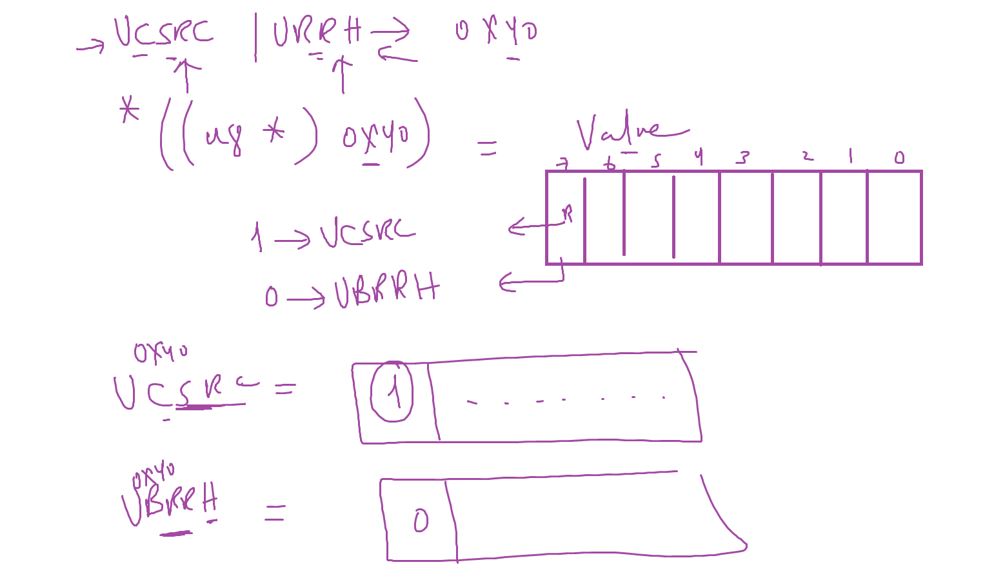 → UCSRC | URRH → 0X40
* ((u8 *) 0X40) = Value
7 6 5 4 3 2 1 0
R
1 → UCSRC
0 → UBRRH
0X40
UCSRC = 1 . . . . . . .
0X40
UBRRH = 0